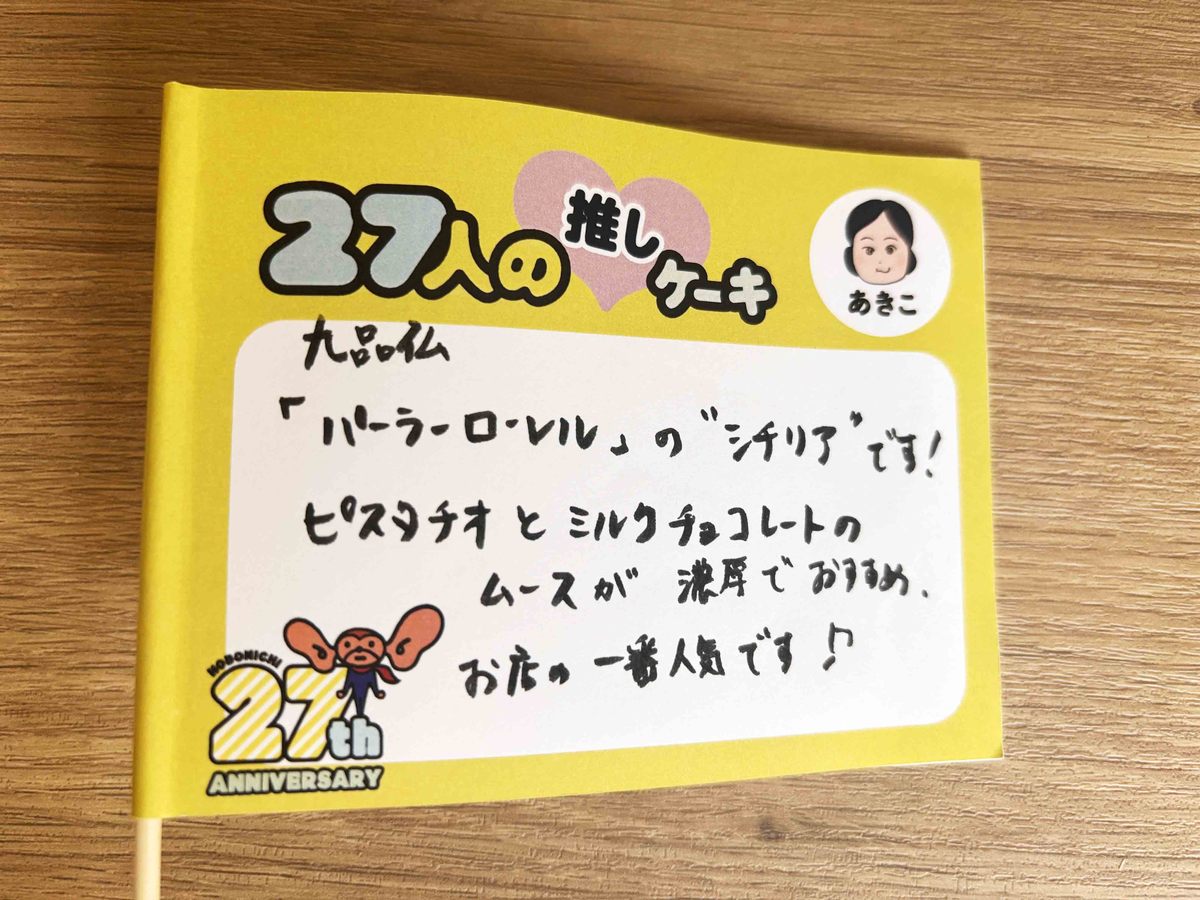 27人の推しケーキ
あきこ
九品仏
「パーラーローレル」の"シチリア"です!
ピスタチオとミルクチョコレートの
ムースが 濃厚でおすすめ.
お店の一番人気です♪
HOBONICHI
27th
ANNIVERSARY